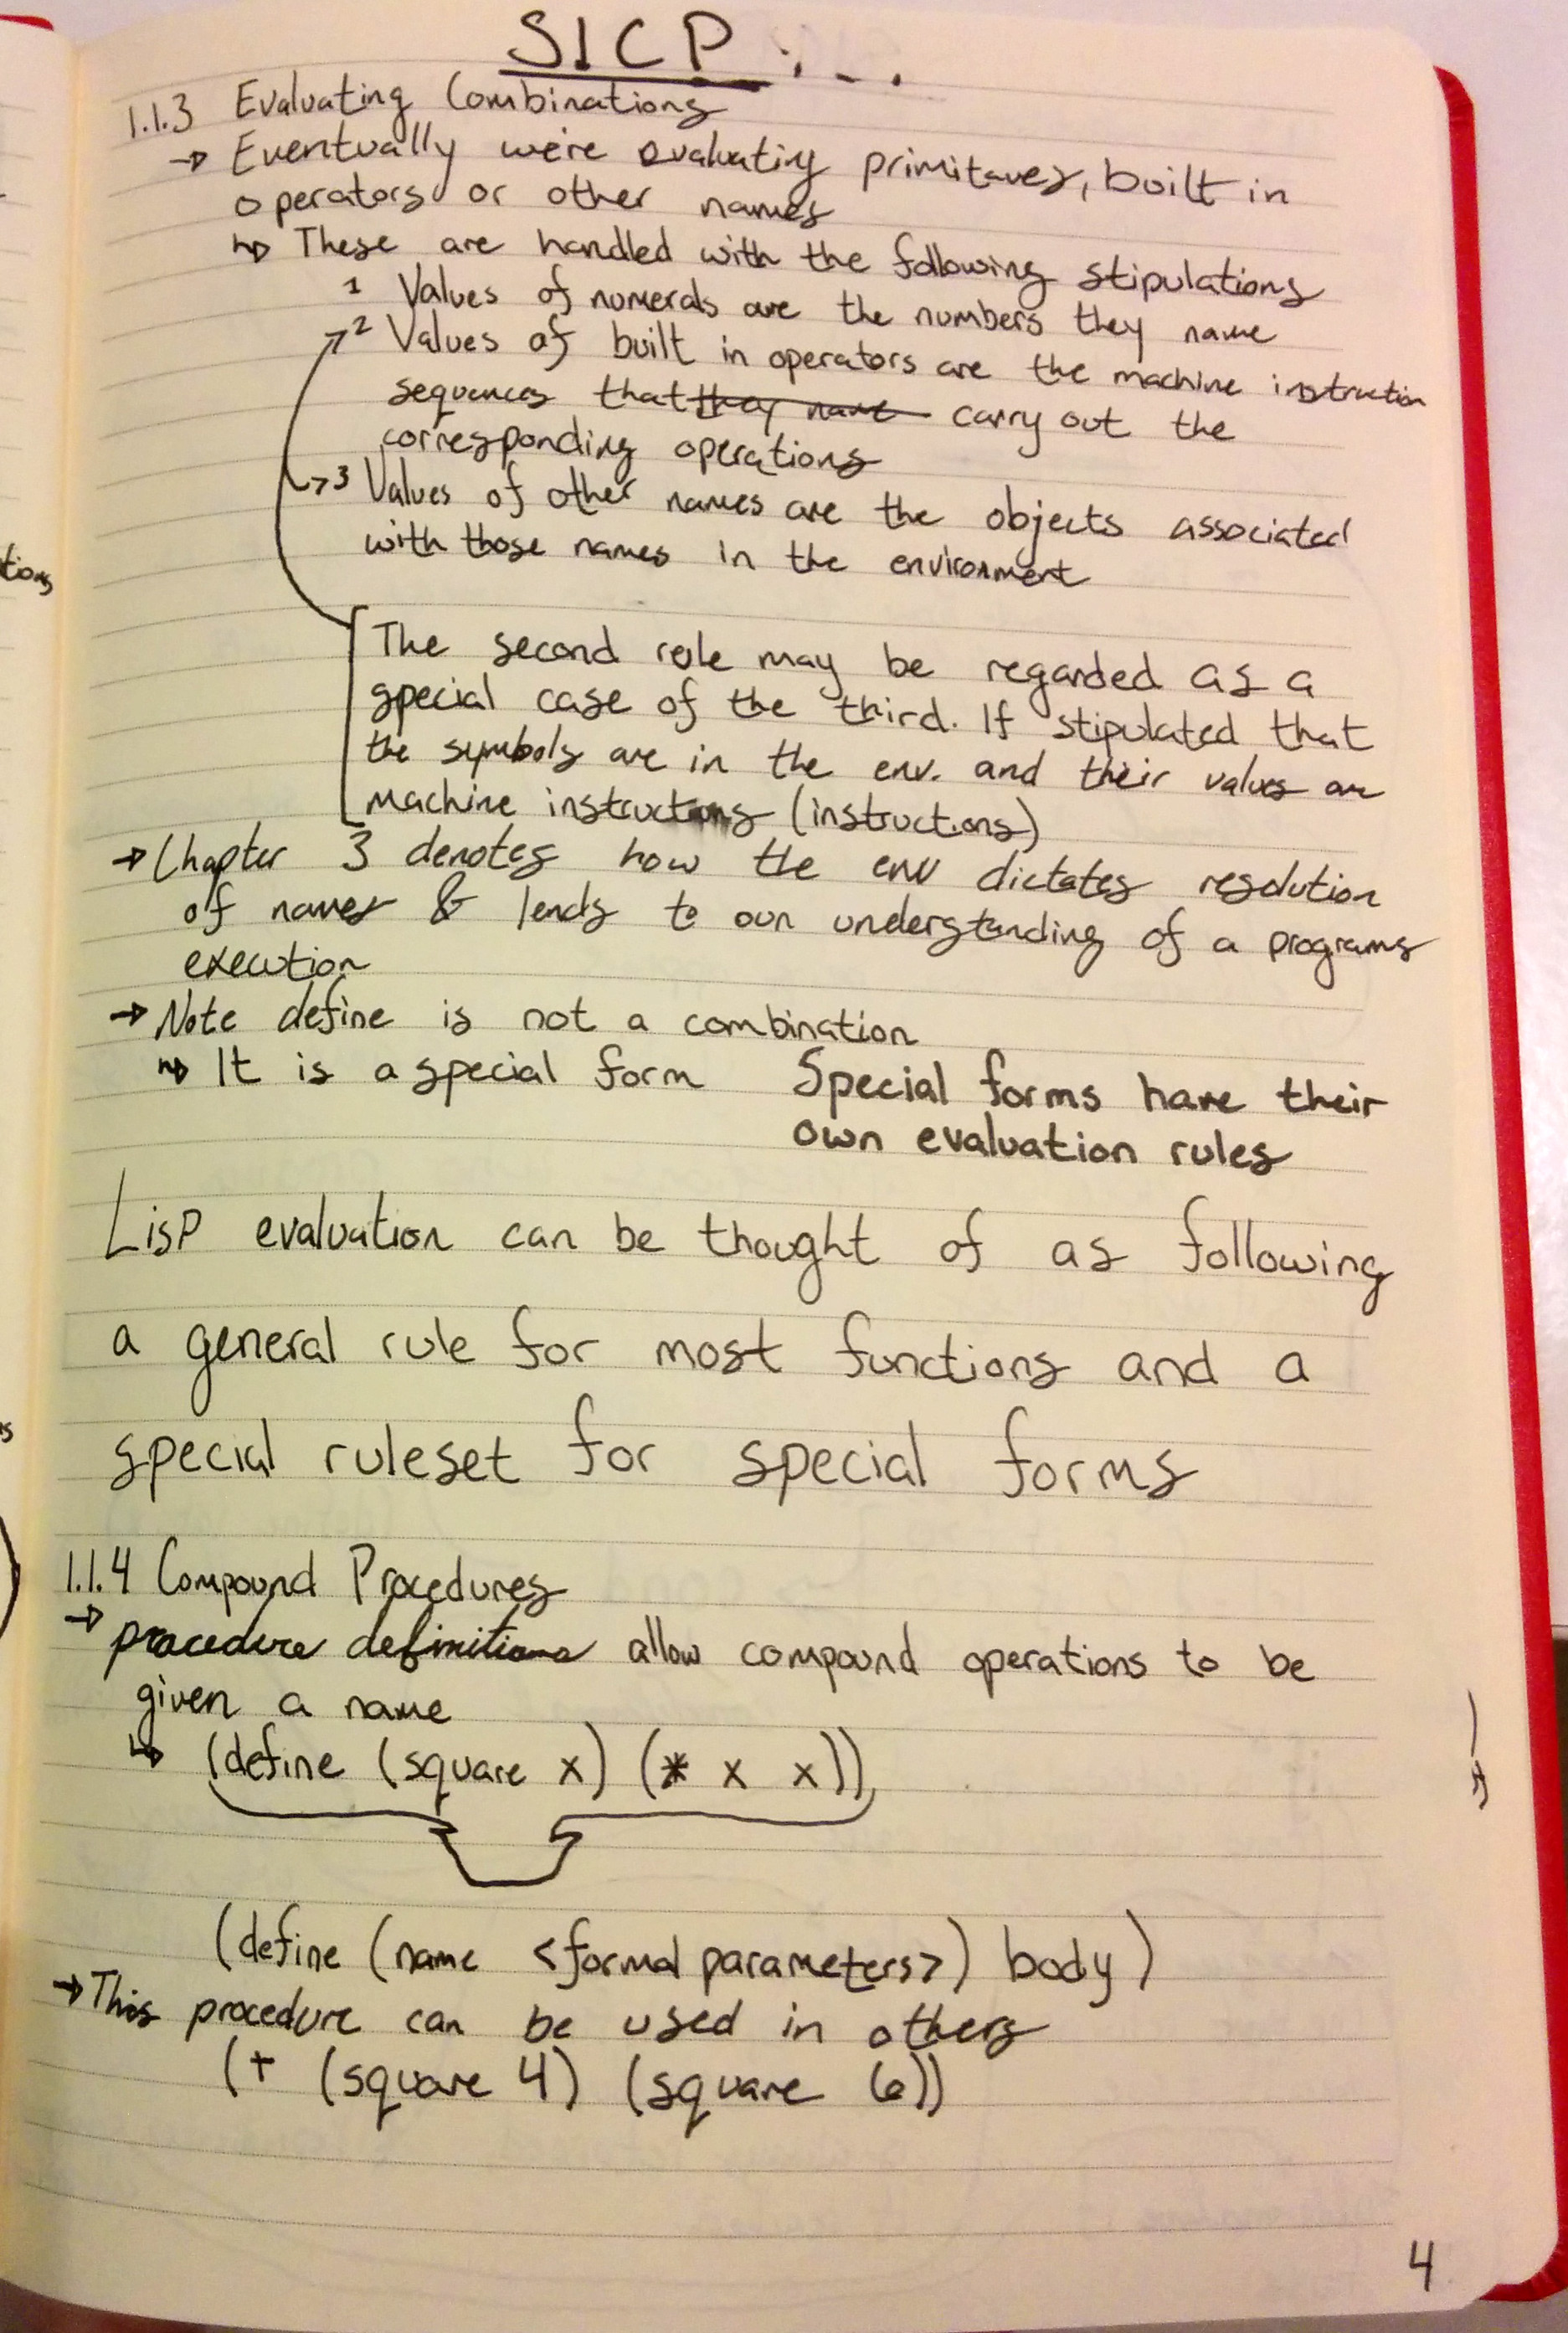 SICP : - .
1.1.3 Evaluating Combinations
→ Eventually we're evaluating primitaves, built in
operators or other names
↳ These are handled with the following stipulations
1 Values of numerals are the numbers they name
2 Values of built in operators are the machine instruction
sequences that they name carry out the
corresponding operations
3 Values of other names are the objects associated
with those names in the environment
The second rule may be regarded as a
special case of the third. If stipulated that
the symbols are in the env. and their values are
machine instructions (instructions)
→ Chapter 3 denotes how the env dictates resolution
of names & lends to our understanding of a programs
execution
→ Note define is not a combination
↳ It is a special form Special forms have their
own evaluation rules
Lisp evaluation can be thought of as following
a general rule for most functions and a
special ruleset for special forms
1.1.4 Compound Procedures
→ procedure definitions allow compound operations to be
given a name
↳ (define (square x) (* x x))
(define (name <formal parameters>) body)
→ This procedure can be used in others
(+ (square 4) (square 6))
4
tions
s